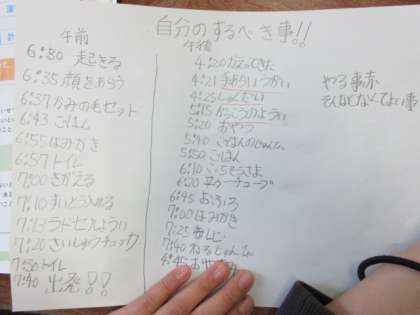 自分のするべき事!!
午前
6:30 起きる
6:35 顔をあらう
6:37 かみの毛セット
6:43 ごはん
6:55 はみがき
6:57 トイレ
7:00 きがえる
7:10 すいとう入れる
7:13 ラドセルようい
7:20 さいしゅうチェック
7:30 トイレ
7:40 出発!!
午後
4:20 かえってきた
4:21 手あらいうがい
4:25 しゅくだい
5:15 がっこうのようい
5:20 おやつ
5:40 ごはんのじゅんび
5:50 ごはん
6:10 ごちそうさま
6:20 ユーチューブ
6:45 おふろ
7:00 はみがき
7:25
7:40 ねるじゅんび
やる事赤
そんなになくてよい事